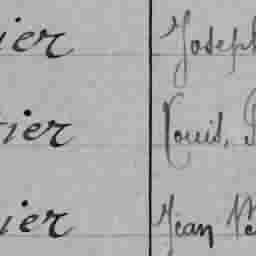 ier Joseph
ier Louis,
ier Jean